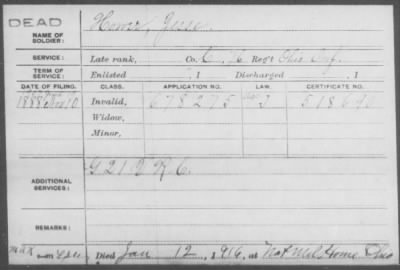 DEAD
NAME OF SOLDIER: Jesse
SERVICE: Late rank, Co. Reg't Ohio Inf.
TERM OF SERVICE: Enlisted , 1 Discharged , 1
DATE OF FILING. CLASS. APPLICATION NO. LAW. CERTIFICATE NO.
1888 Nov 10 Invalid, 678275 J 518640
Widow,
Minor,
ADDITIONAL SERVICES: G 212 R. C.
REMARKS:
Died Jan 12, 1916, at Nat Mil Home Ohio